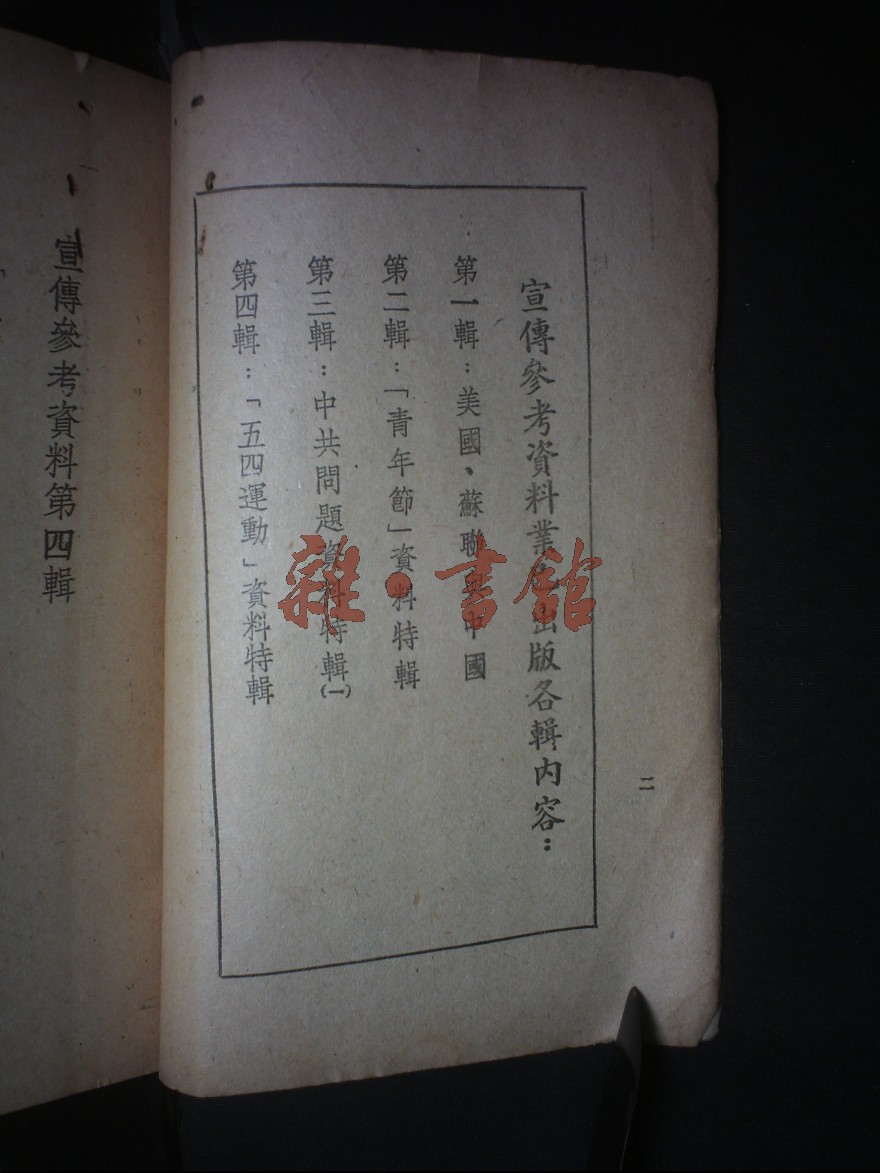 宣傳參考資料業已出版各輯內容：
第一輯：美國、蘇聯與中國
第二輯：「青年節」資料特輯
第三輯：中共問題資料特輯(一)
第四輯：「五四運動」資料特輯
二
宣傳參考資料第四輯
雜·書館